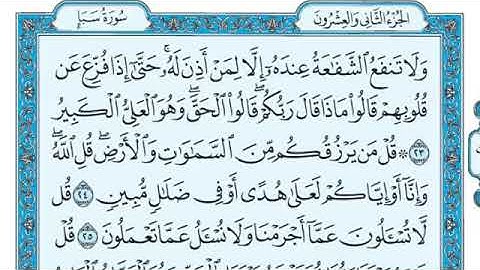 سُورَةُ سَبَإٍ
الجُزْءُ الثَّانِي وَالعِشْرُونَ
وَلَا تَنفَعُ الشَّفَاعَةُ عِندَهُ إِلَّا لِمَنْ أَذِنَ لَهُ حَتَّى إِذَا فُزِّعَ عَن
قُلُوبِهِمْ قَالُوا مَاذَا قَالَ رَبُّكُمْ قَالُوا الْحَقَّ وَهُوَ الْعَلِيُّ الْكَبِيرُ
٢٣ ۞ قُلْ مَن يَرْزُقُكُم مِّنَ السَّمَاوَاتِ وَالْأَرْضِ قُلِ اللَّهُ
وَإِنَّا أَوْ إِيَّاكُمْ لَعَلَى هُدًى أَوْ فِي ضَلَالٍ مُّبِينٍ ٢٤ قُل
لَّا تُسْأَلُونَ عَمَّا أَجْرَمْنَا وَلَا نُسْأَلُ عَمَّا تَعْمَلُونَ ٢٥ قُلْ